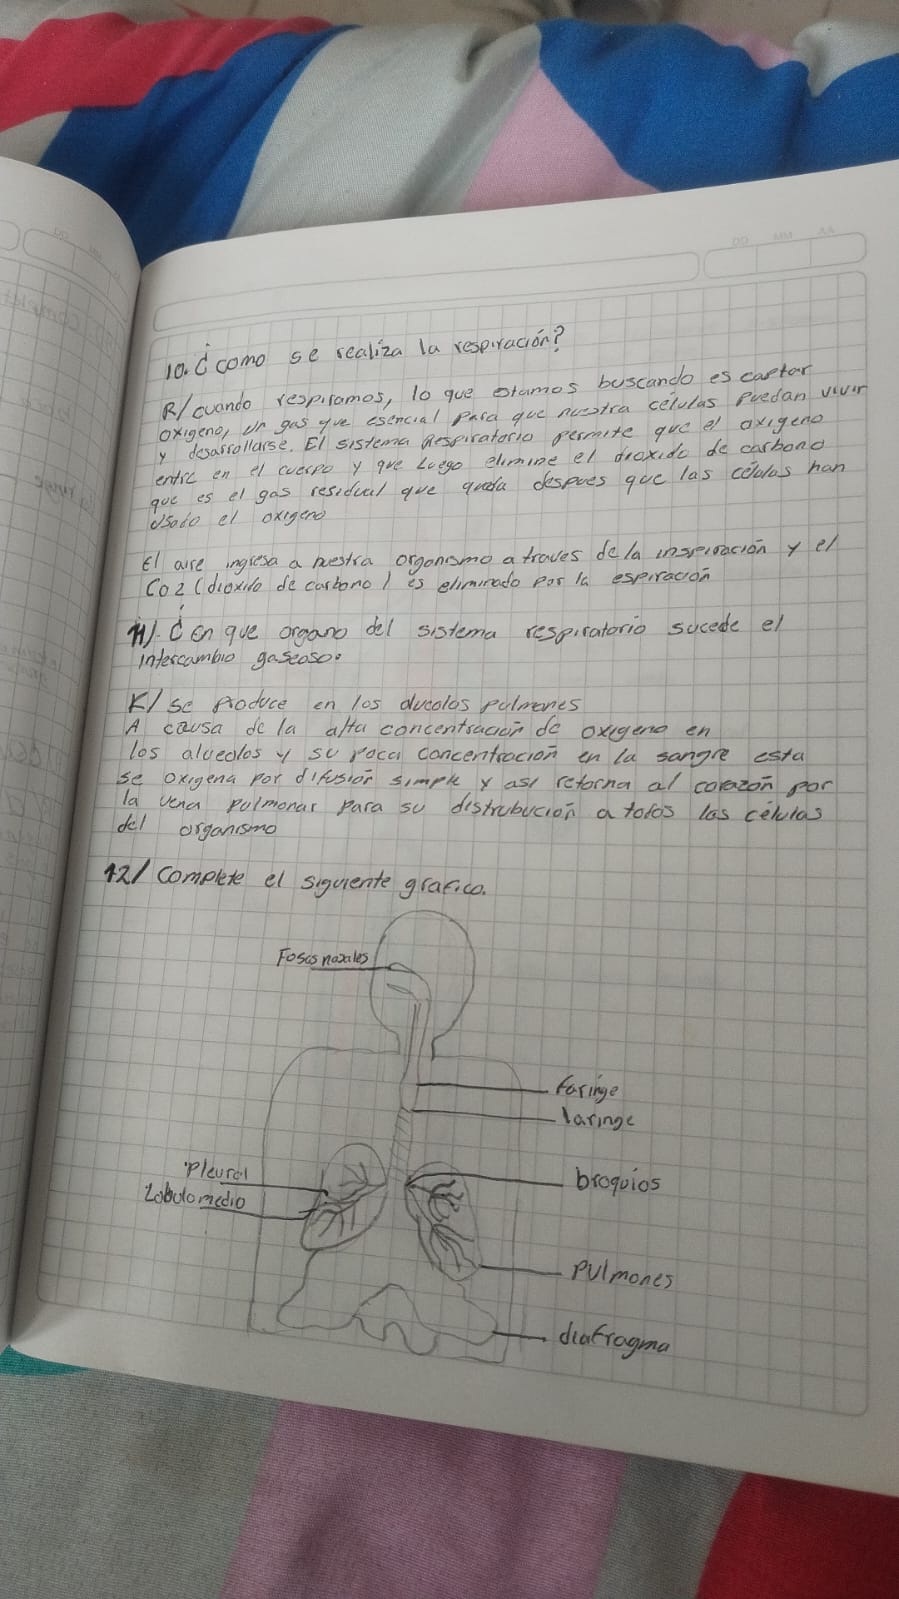 AA MM DD
10. ¿como se realiza la respiración?
R/ cuando respiramos, lo que stamos buscando es captar
oxigeno, un gas que esencial para que nuestra células puedan vivir
y desarrollarse. El sistema Respiratorio permite que el oxigeno
entre en el cuerpo y que luego elimine el dioxido de carbono
que es el gas residual que queda despues que las células han
usado el oxigeno
El aire ingresa a nuestra organismo a traves de la inspiración y el
Co2 (dioxido de carbono) es eliminado por la espiración
11). ¿ en que organo del sistema respiratorio sucede el
intercambio gaseoso.
R/ se produce en los alveolos pulmones
A causa de la alta concentración de oxigeno en
los alveolos y su poca concentración en la sangre esta
se oxigena por difusión simple y asi retorna al corazón por
la vena pulmonar para su distrubución a todos las células
del organismo
12/ Complete el siguiente grafico.
Fosas nasales
faringe
laringe
Pleural
Lobulo medio
broquios
Pulmones
diafragma